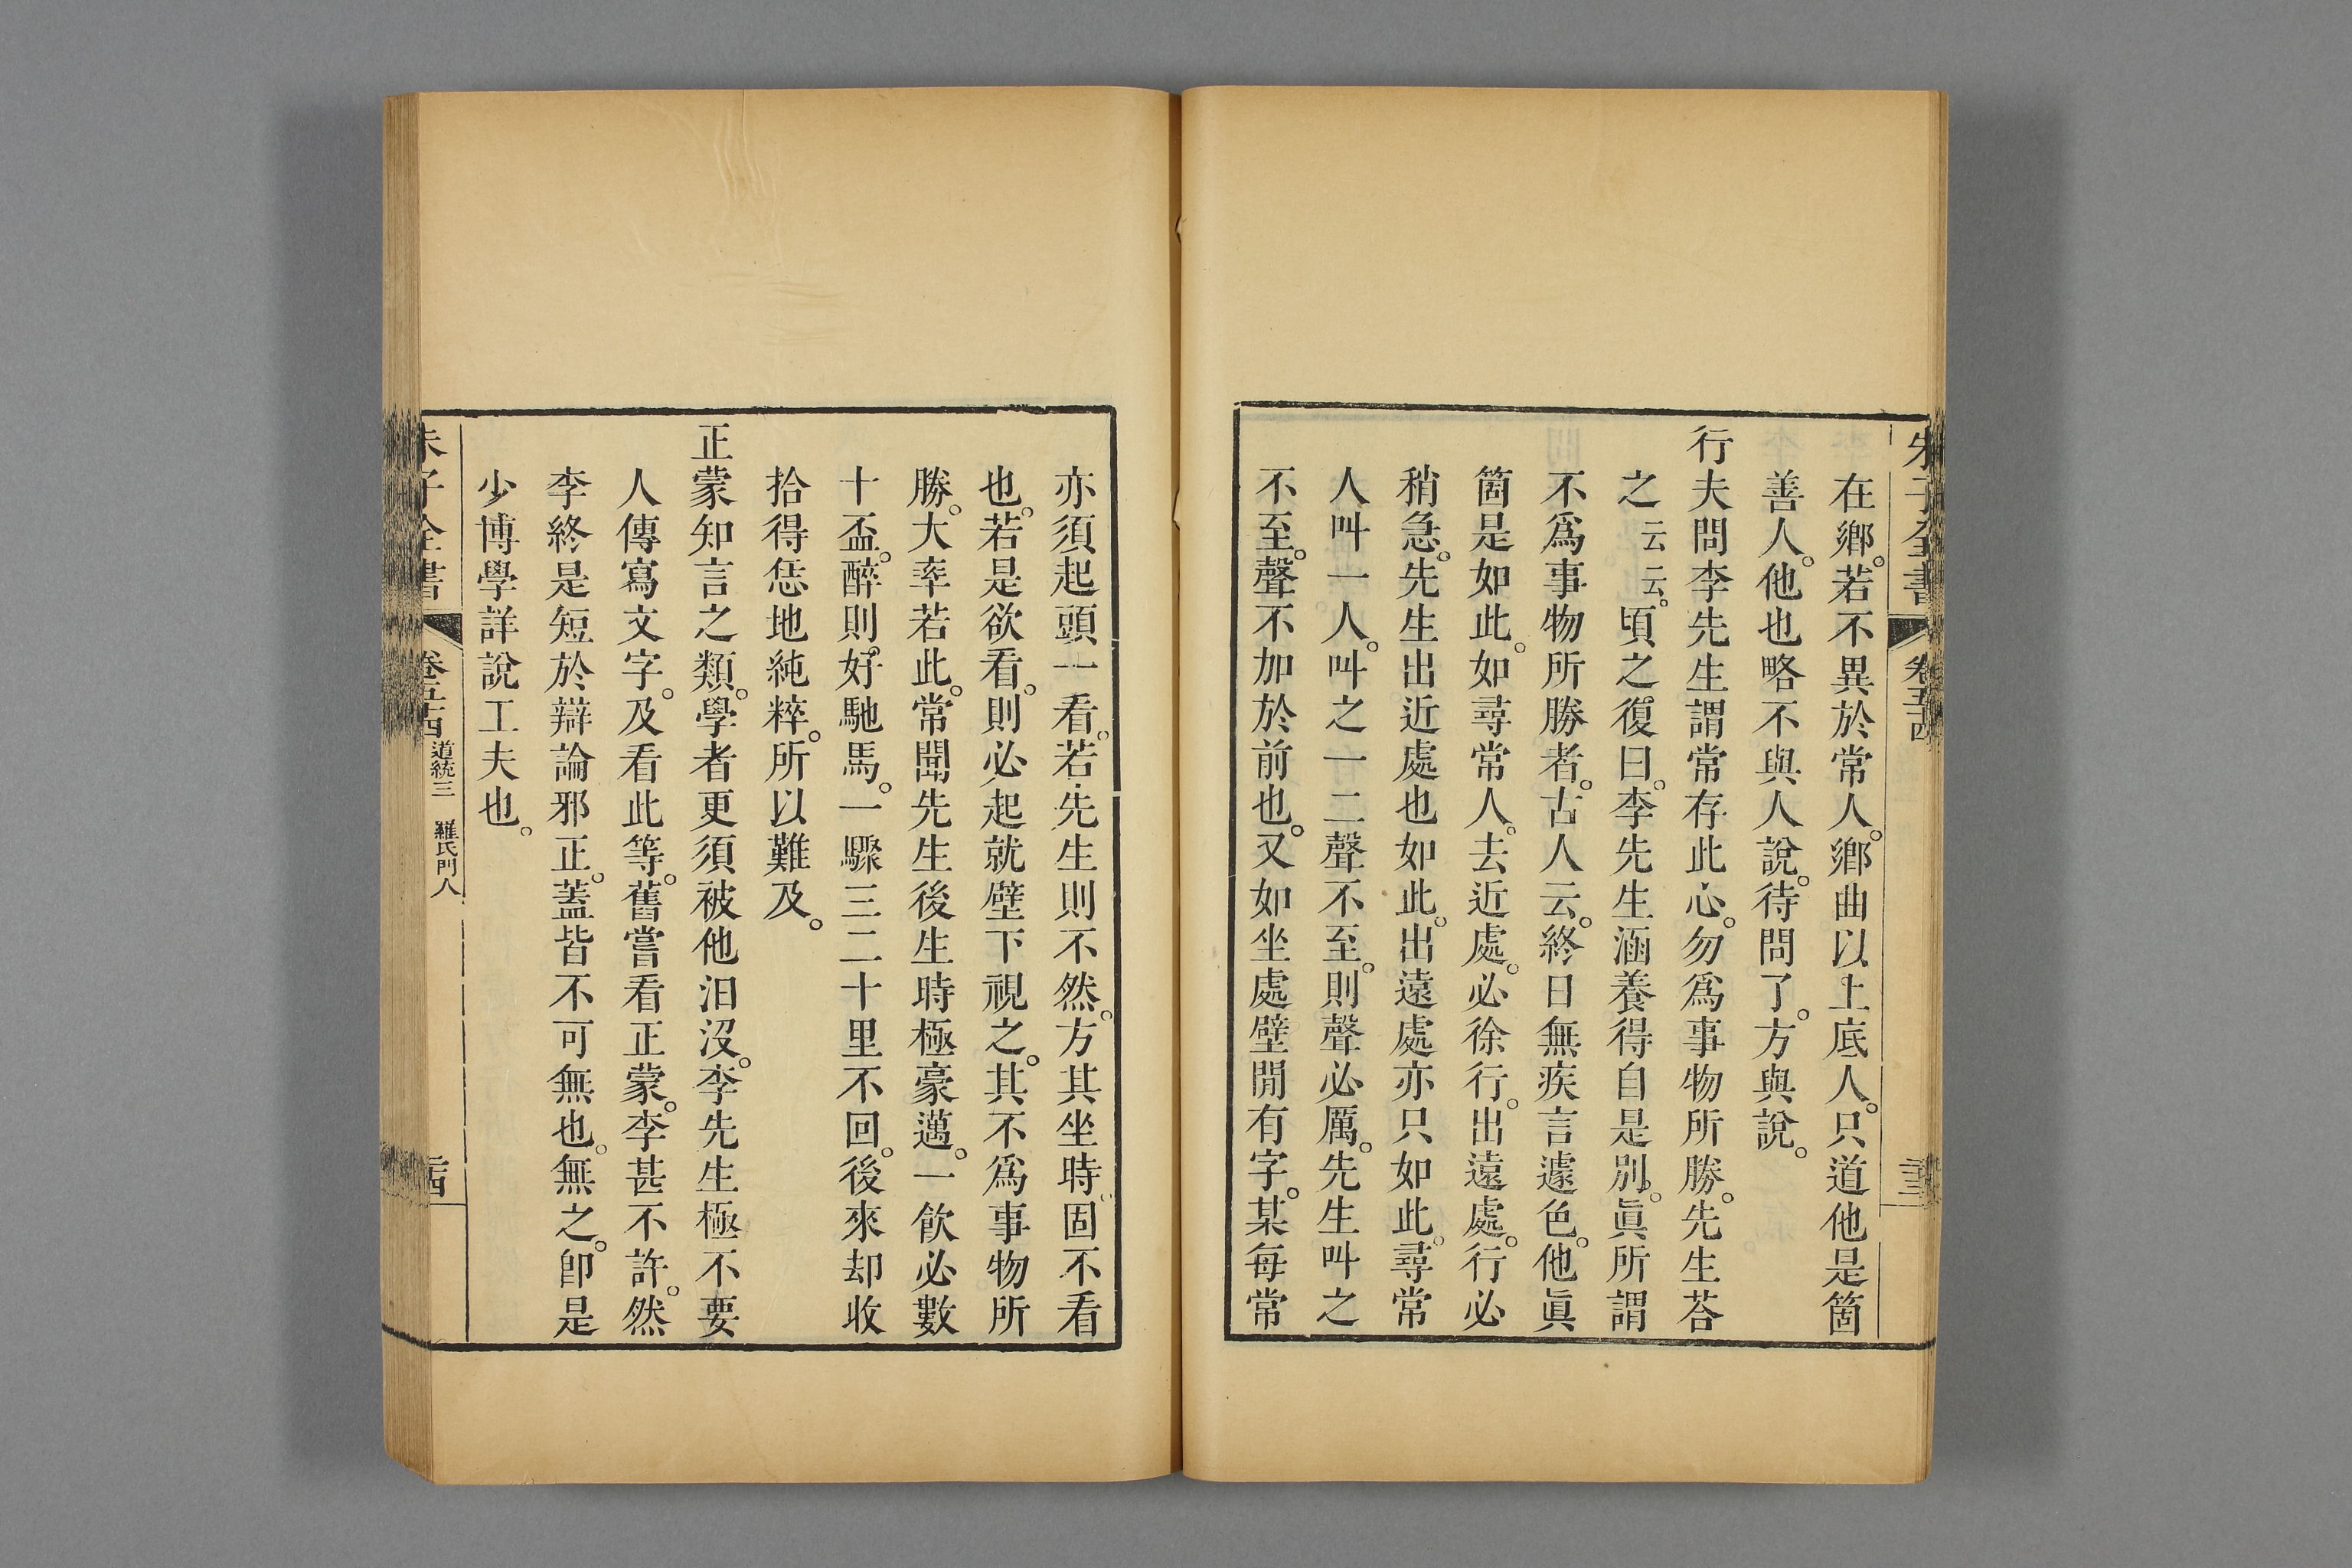 朱子全書 卷五十四 二十三
在鄕。若不異於常人。鄕曲以上底人。只道他是箇
善人。他也略不與人說。待問了。方與說。
行夫問李先生謂常存此心。勿爲事物所勝。先生荅
之云云。頃之。復曰。李先生涵養得自是別。眞所謂
不爲事物所勝者。古人云。終日無疾言遽色。他眞
箇是如此。如尋常人。去近處。必徐行。出遠處。行必
稍急。先生出近處也如此。出遠處亦只如此。尋常
人叫一人。叫之一二聲不至。則聲必厲。先生叫之
不至。聲不加於前也。又如坐處壁閒有字。某每常
亦須起頭一看。若先生則不然。方其坐時。固不看
也。若是欲看。則必起就壁下視之。其不爲事物所
勝。大率若此。常聞先生後生時極豪邁。一飮必數
十盃。醉則好馳馬。一驟三二十里不回。後來却收
拾得恁地純粹。所以難及。
正蒙知言之類。學者更須被他汩沒。李先生極不要
人傳寫文字。及看此等。舊嘗看正蒙。李甚不許。然
李終是短於辯論邪正。蓋皆不可無也。無之。卽是
少博學詳說工夫也。
朱子全書 卷五十四 道統三 羅氏門人 二十四